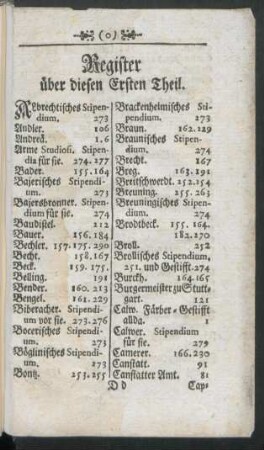 (o)
Register
über diesen Ersten Theil.
Albrechtisches Stipen-
dium. 273
Andler. 106
Andreä. 1.6
Arme Studiosi. Stipen-
dia für sie. 274.277
Bader. 155.164
Bajerisches Stipendi-
um. 273
Bajersbronner. Stipen-
dium für sie. 274
Baudistel. 112
Bauer. 156.184
Bechler. 157.175.290
Becht. 158.167
Beck. 159.175.
Belling. 191
Bender. 160.213
Bengel. 161.229
Biberacher. Stipendi-
um vor sie. 273.276
Bocerisches Stipendi-
um. 273
Böglinisches Stipendi-
um. 173
Bontz. 253.255
Brackenheimisches Sti-
pendium. 273
Braun. 162.129
Braunisches Stipen-
dium. 274
Brecht. 167
Breg. 163.191
Breitschwerdt. 252.254
Breuning. 255.263
Breuningisches Stipen-
dium. 274
Brodtbeck. 155.164.
182.270
Broll. 252
Brollisches Stipendium,
251. und Gestifft 274
Burckh. 164.165
Burgermeister zu Stutt-
gart. 121
Calw. Färber-Gestifft
allda. 1
Calwer. Stipendium
für sie. 279
Camerer. 166.230
Canstatt. 91
Canstatter Amt. 81
D d
Cap-